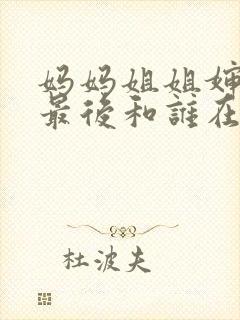 妈妈姐姐婶
最後和誰在
杜波夫